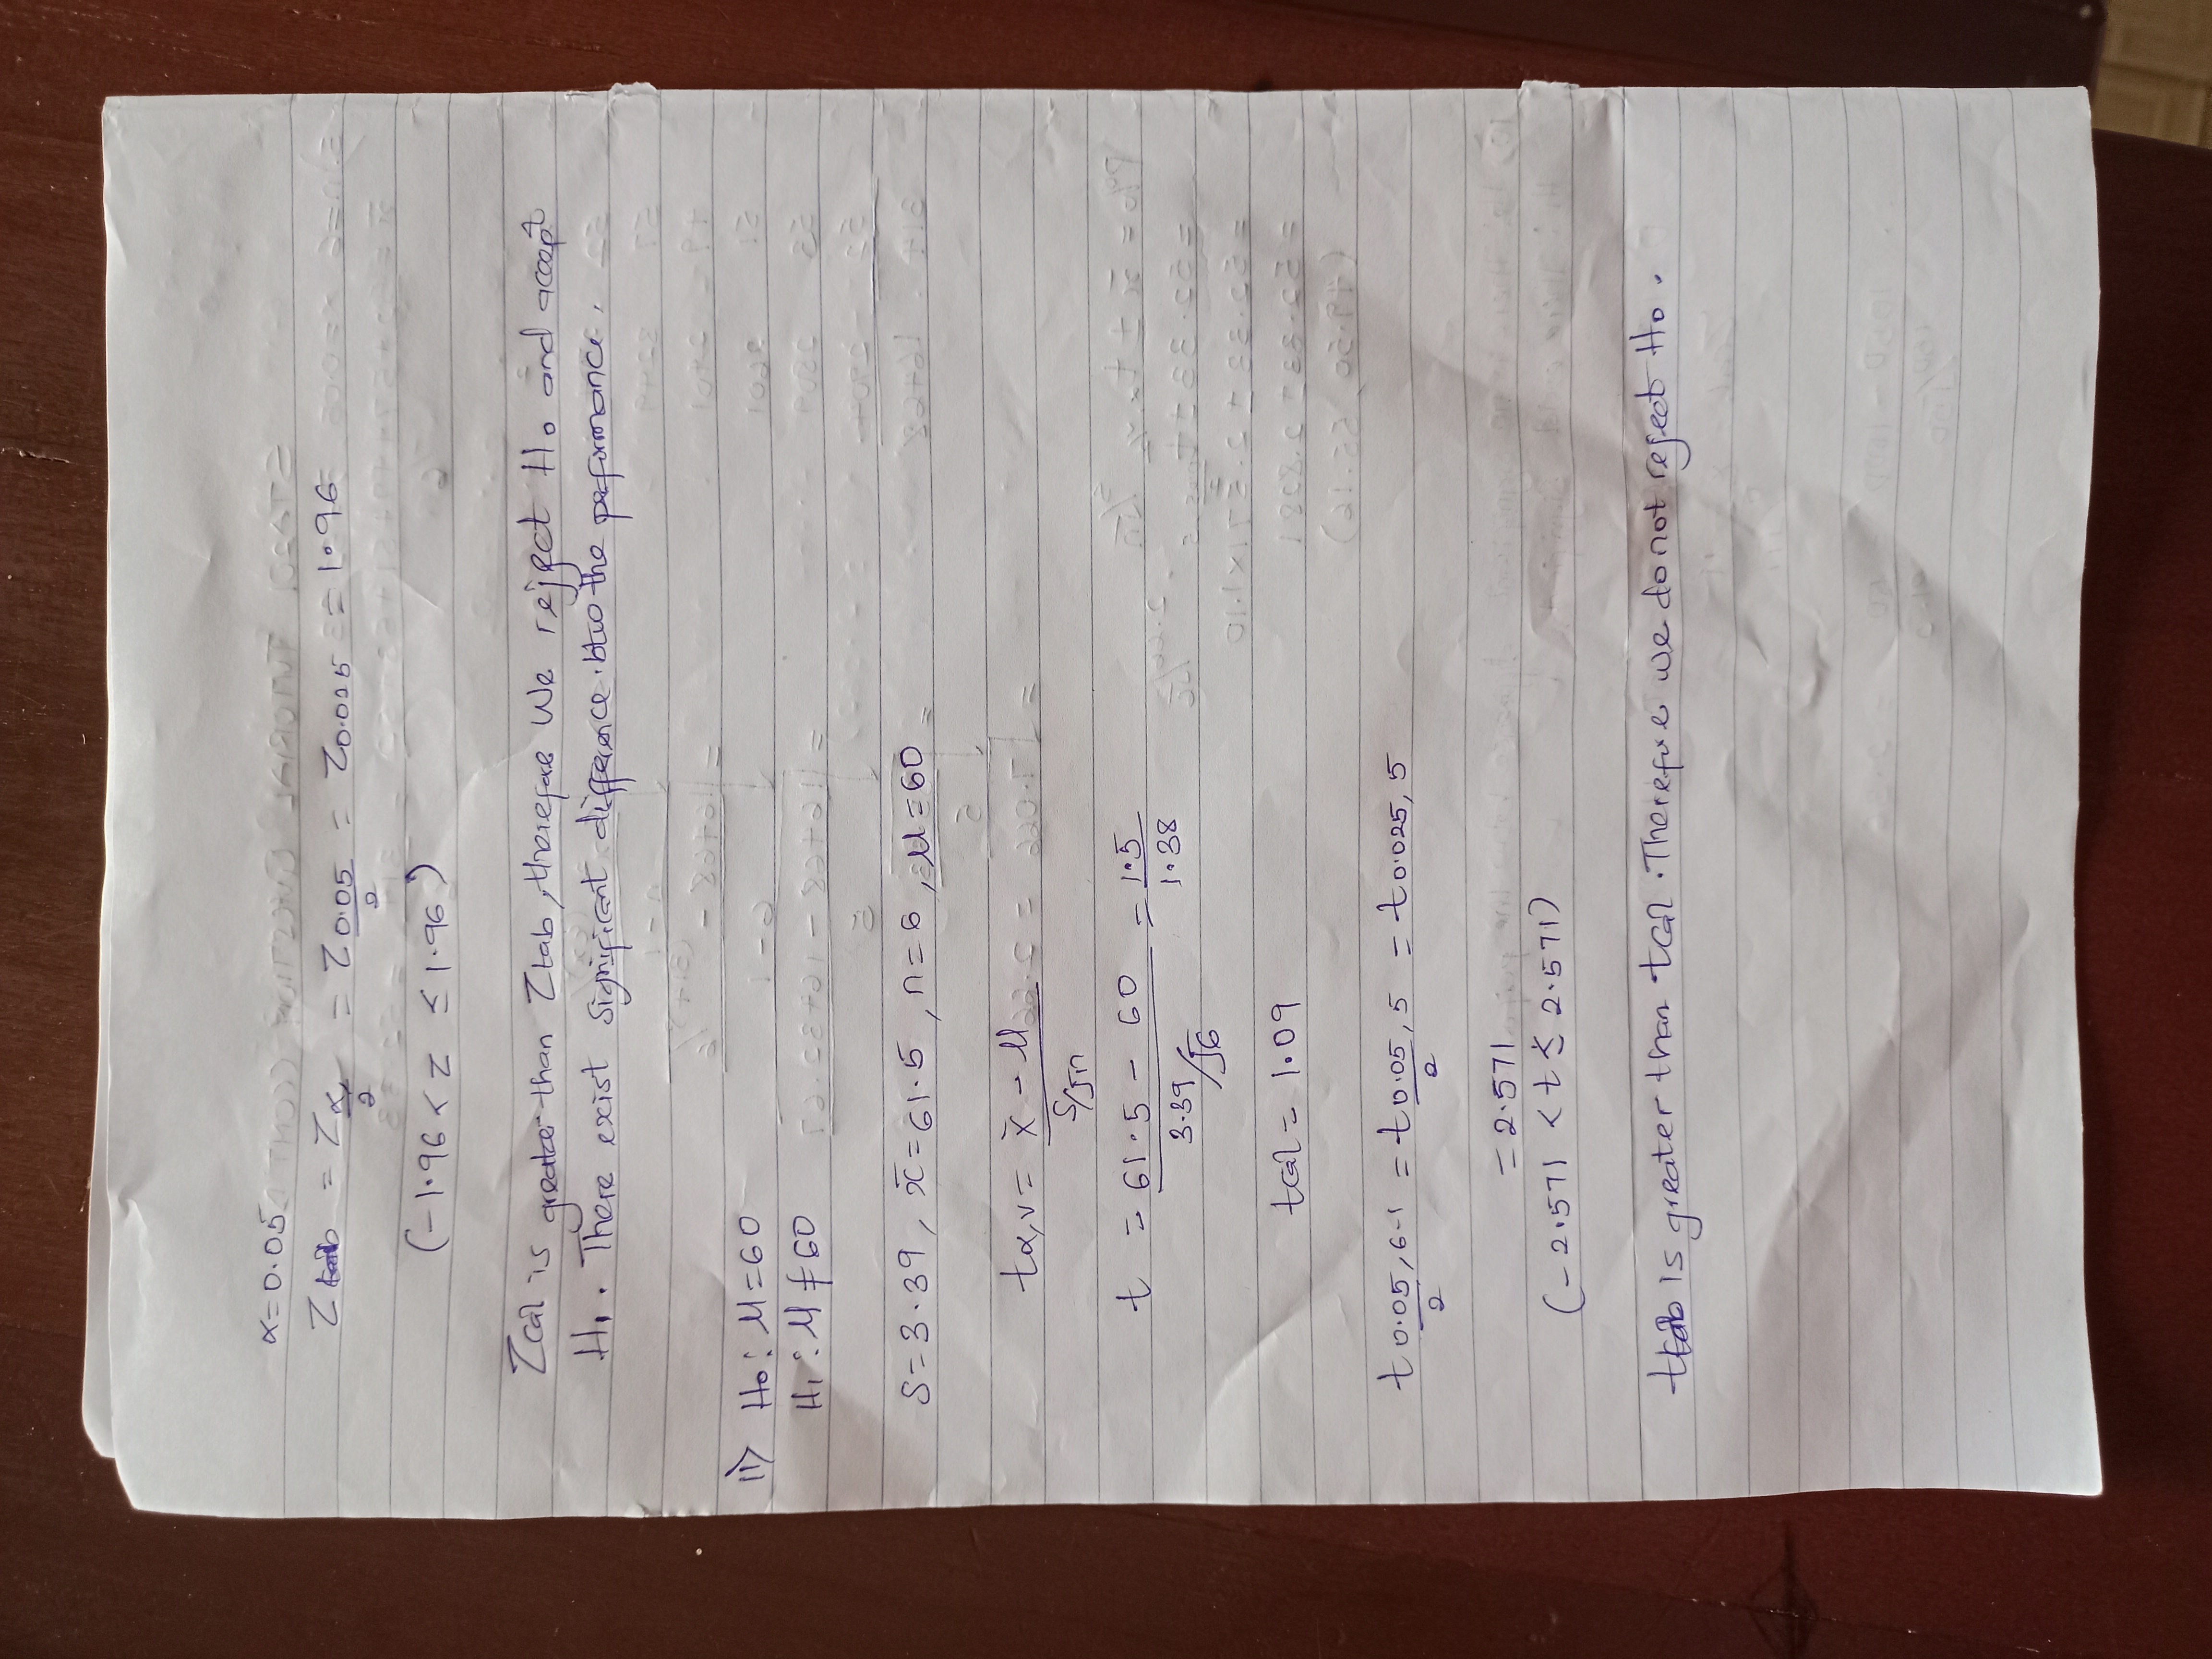 α=0.05
Ztab = Zα/2 = Z0.05/2 = Z0.025 = 1.96
(-1.96 < Z ≤ 1.96)
Zcal is greater than Ztab, therefore We reject Ho and accept
H1. There exist significant difference btw the performance.
11) Ho: μ=60
H1: μ≠60
S=3.39, x̄=61.5, n=6, μ=60
tα,v = x̄ - μ / S/√n
t = 61.5 - 60 / 3.39/√6 = 1.5/1.38
tcal = 1.09
t0.05/2, 6-1 = t0.05/2, 5 = t0.025, 5
= 2.571
(-2.571 < t ≤ 2.571)
ttab is greater than tcal. Therefore we do not reject Ho.